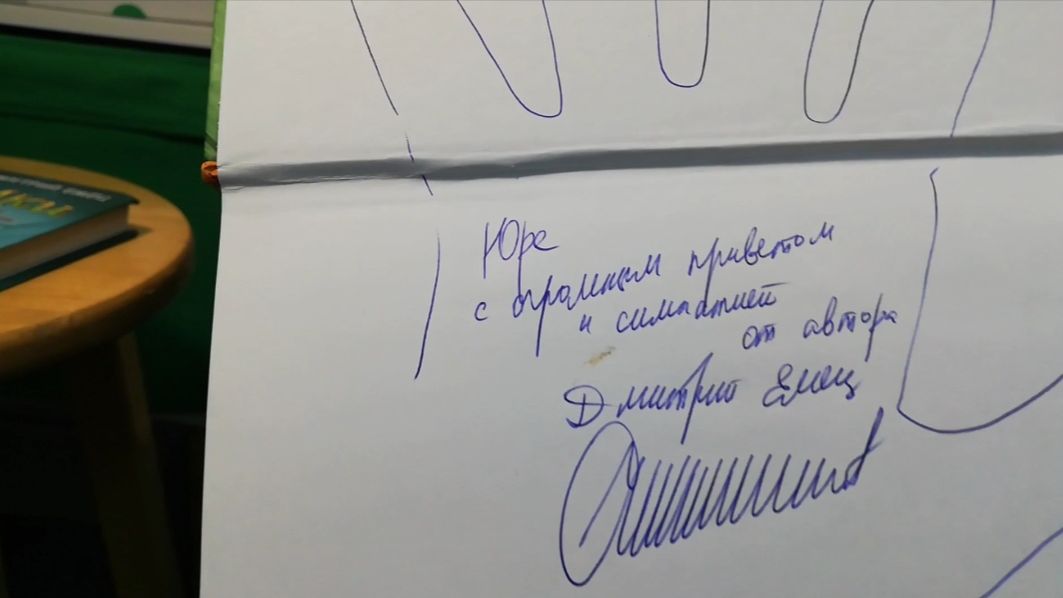 Юре
с огромным приветом
и симпатией
от автора
Дмитрий Емец